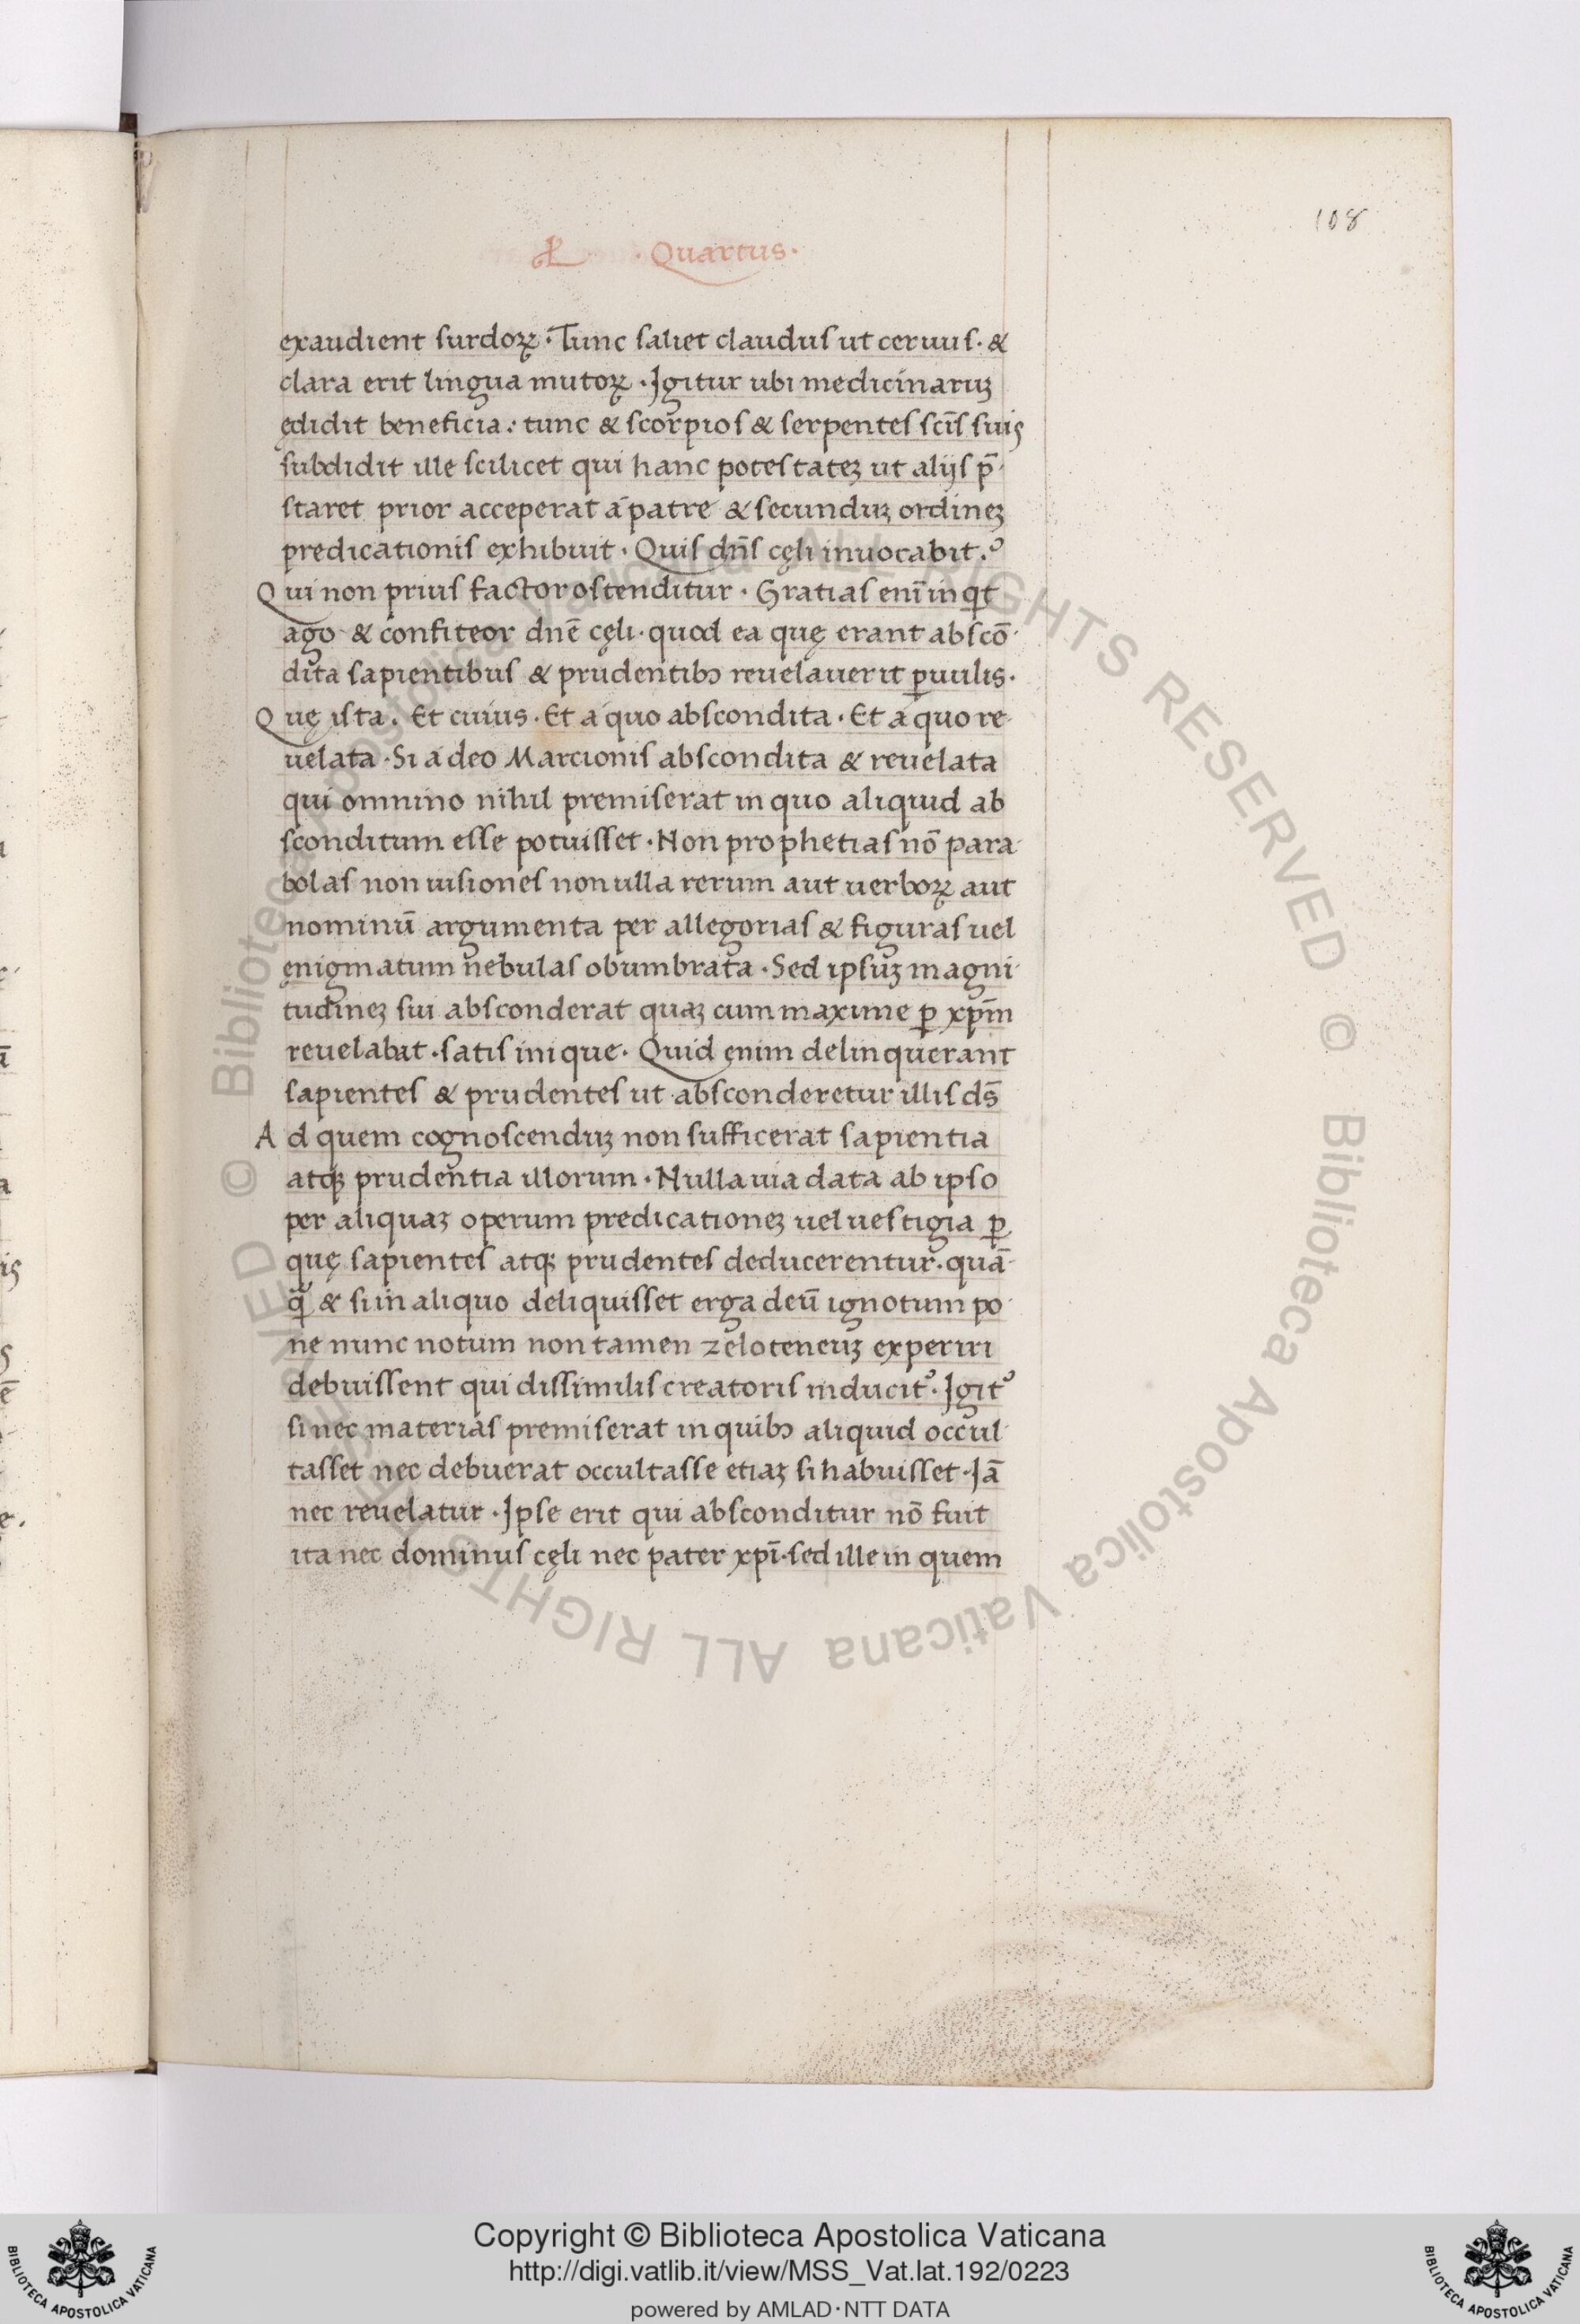 108
Quartus·
exaudient surdoꝝ · Tunc saliet claudus ut ceruus · &
clara erit lingua mutoꝝ · Igitur ubi medicinaruꝫ
ędidit beneficia : tunc & scorpios & serpentes scīs suis
subdidit ille scilicet qui hanc potestateꝫ ut alijs p̄-
staret prior acceperat á patre & secunduꝫ ordineꝫ
predicationis exhibuit · Quis dn̄s cęli inuocabit ?
Qui non prius factor ostenditur · Gratias eni᷑ inqt
ago & confiteor dnē cęli · quod ea quę erant abscō-
dita sapientibus & prudentibꝰ reuelauerit ꝑuulis ·
Quę ista . Et cuius · Et á quo abscondita · Et á quo re-
uelata · Si á deo Marcionis abscondita & reuelata
qui omnino nihil premiserat in quo aliquid ab
sconditum esse potuisset · Non prophetias nō para-
bolas non uisiones non ulla rerum aut uerboꝝ aut
nominū argumenta per allegorias & figuras uel
ęnigmatum nebulas obumbrata · Sed ipsuꝫ magni-
tudineꝫ sui absconderat quaꝫ cum maxime ꝑ xp̄m
reuelabat · satis inique · Quid enim delinquerant
sapientes & prudentes ut absconderetur illis ds̄
Ad quem cognoscenduꝫ non sufficerat sapientia
atqꝫ prudentia illorum · Nulla uia data ab ipso
per aliquaꝫ operum predicationeꝫ uel uestigia ꝑ
quę sapientes atqꝫ prudentes deducerentur · quā-
q̃ & si in aliquo deliquisset erga deū ignotum po-
ne nunc notum non tamen zeloteneuꝫ experiri
debuissent qui dissimilis creatoris inducit᷒ · Igit᷒
si nec materias premiserat in quibꝰ aliquid occul-
tasset nec debuerat occultasse etiaꝫ si habuisset · Iā
nec reuelatur · Ipse erit qui absconditur nō fuit
ita nec dominus cęli nec pater xpī · sed ille in quem
© Biblioteca Apostolica Vaticana ALL RIGHTS RESERVED © Biblioteca Apostolica Vaticana ALL RIGHTS RESERVED
BIBLIOTECA APOSTOLICA VATICANA
Copyright © Biblioteca Apostolica Vaticana
http://digi.vatlib.it/view/MSS_Vat.lat.192/0223
powered by AMLAD·NTT DATA
BIBLIOTECA APOSTOLICA VATICANA